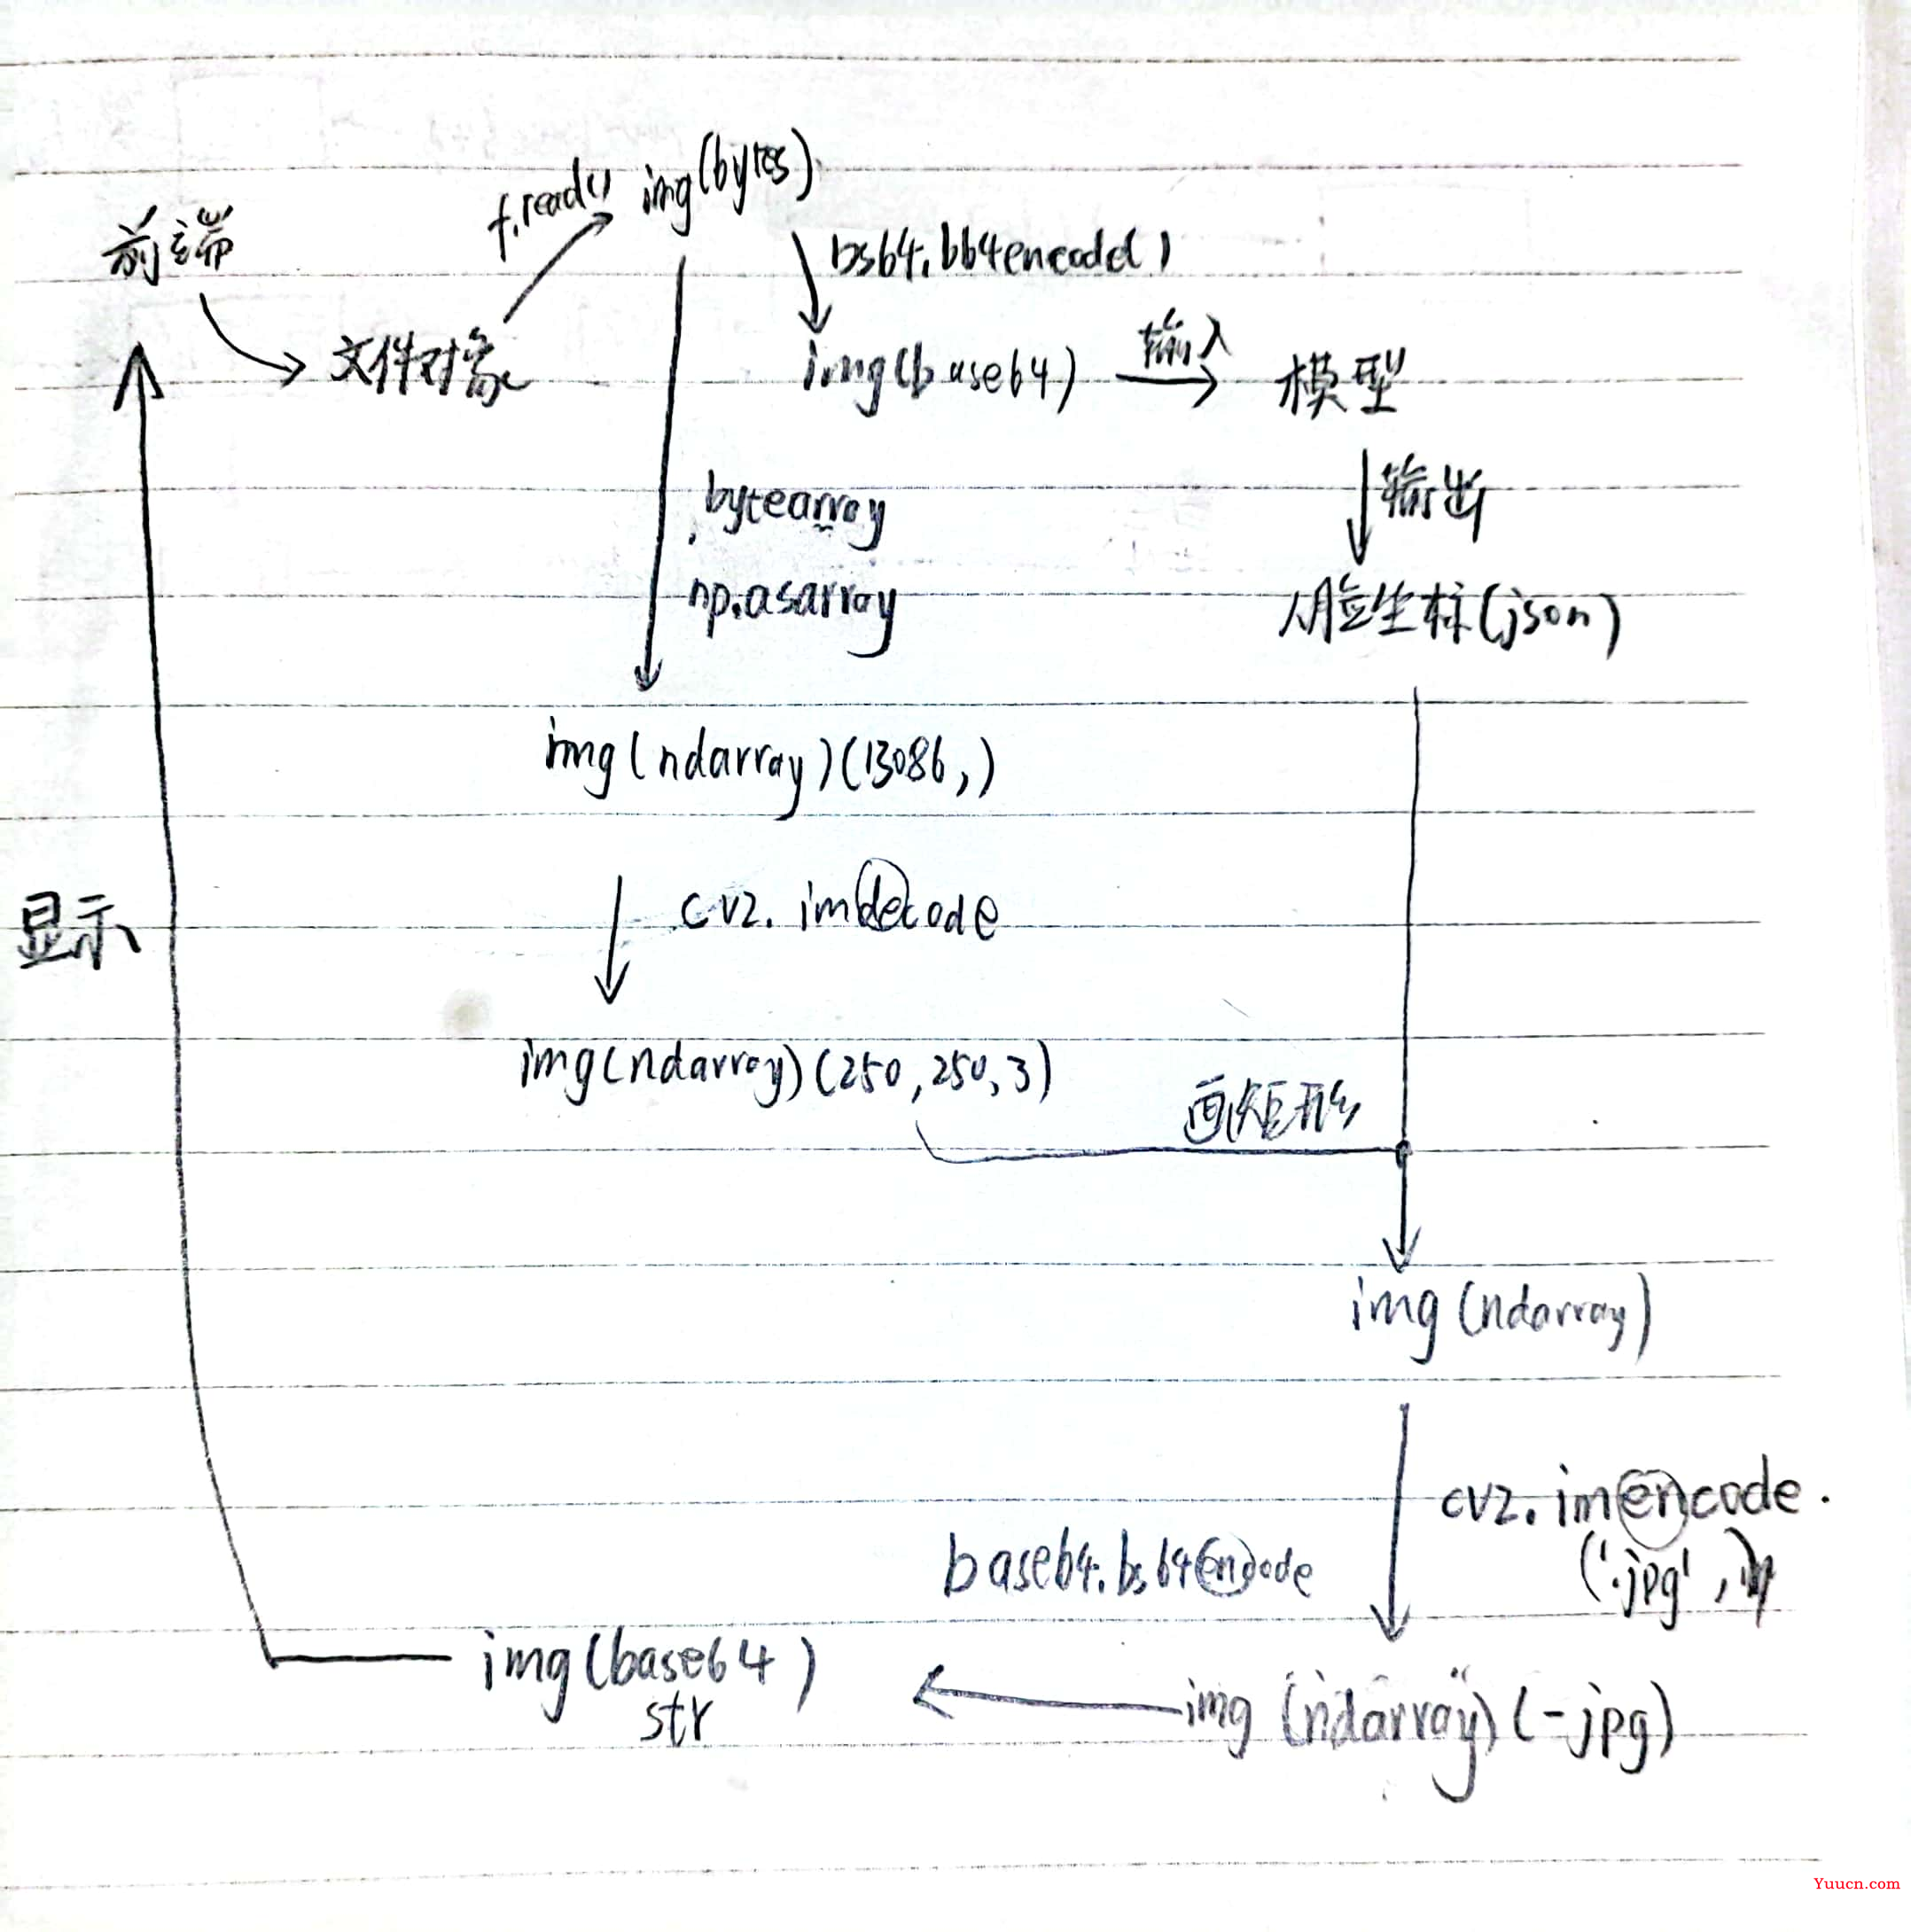 f.read() img(bytes)
前端
bs64.b64encode()
文件对象
img(base64)
输入
模型
输出
bytearray
np.asarray
人脸坐标(json)
img(ndarray)(13086,)
cv2.imdecode
显示
img(ndarray)(250,250,3)
画矩形
img(ndarray)
cv2.imencode.
('.jpg',
base64.bs64encode
img(base64)
str
img(ndarray)(-jpg)
Yuucn.com